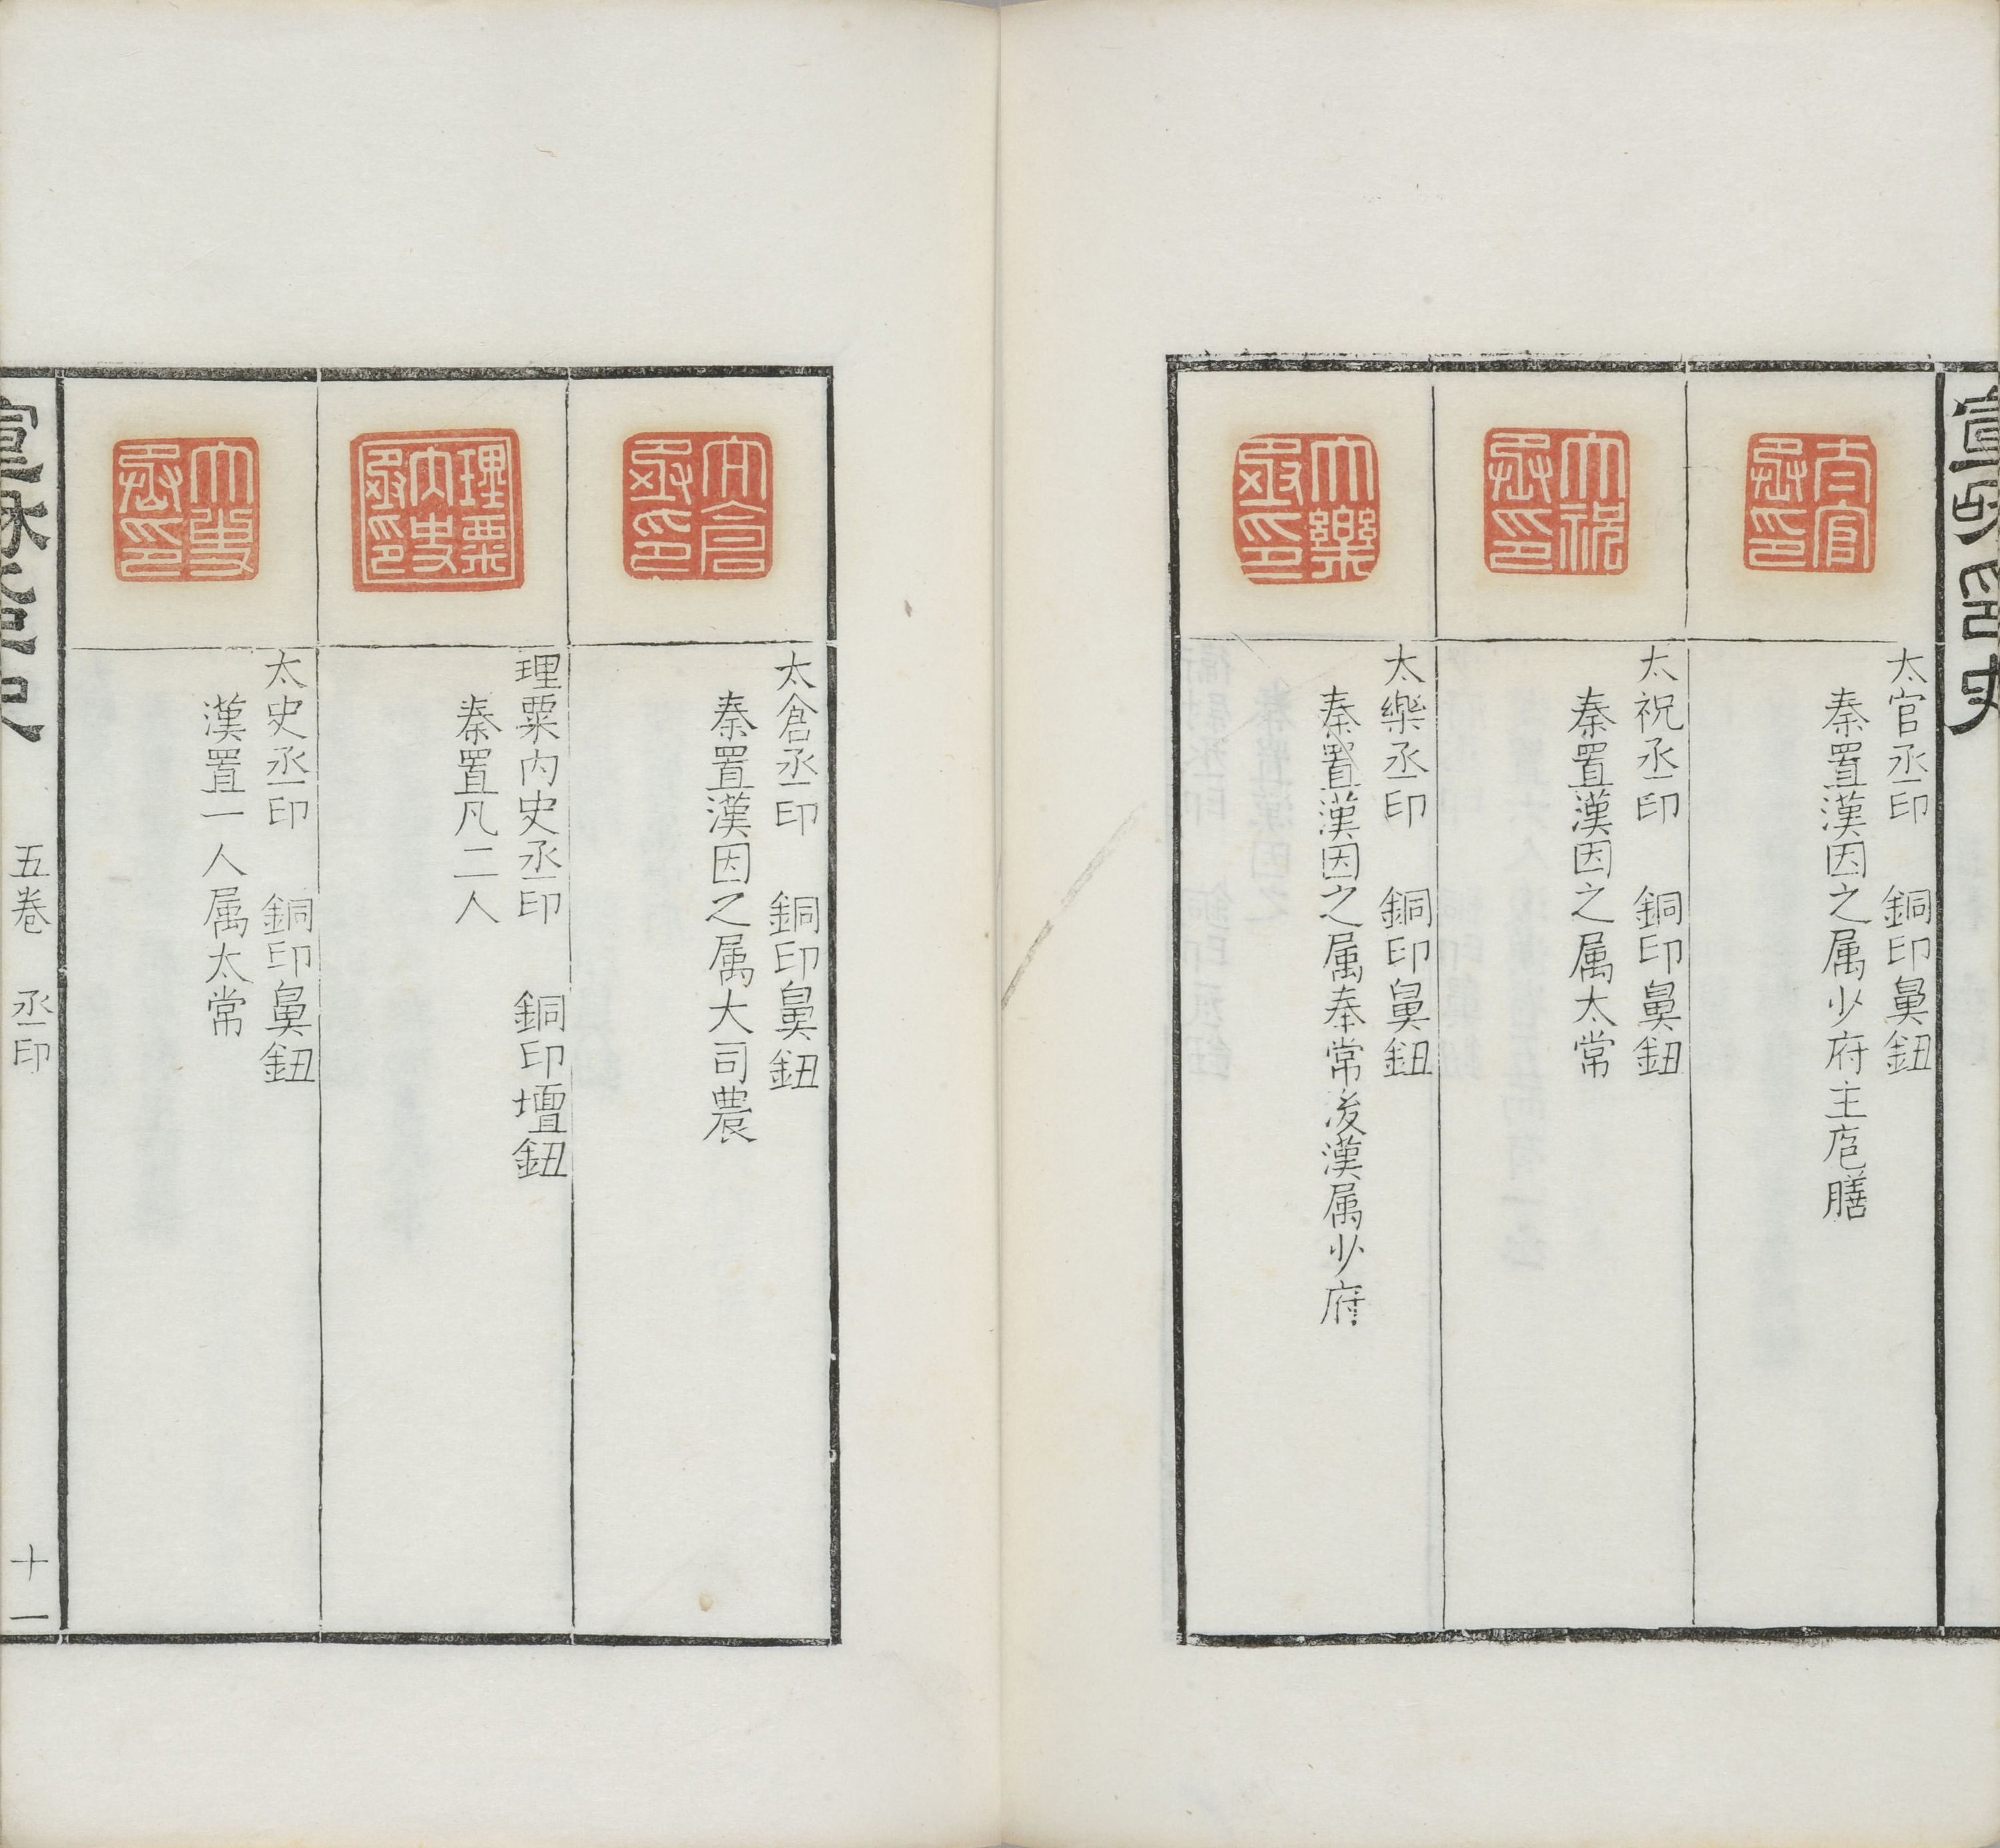 太官丞印
太官丞印　銅印鼻鈕
秦置漢因之属少府主庖膳
太祝丞印
太祝丞印　銅印鼻鈕
秦置漢因之属太常
太樂丞印
太樂丞印　銅印鼻鈕
秦置漢因之属奉常後漢属少府
太倉丞印
太倉丞印　銅印鼻鈕
秦置漢因之属大司農
理粟內史丞印
理粟内史丞印　銅印壇鈕
秦置凡二人
太史丞印
太史丞印　銅印鼻鈕
漢置一人属太常
五卷　丞印　十一